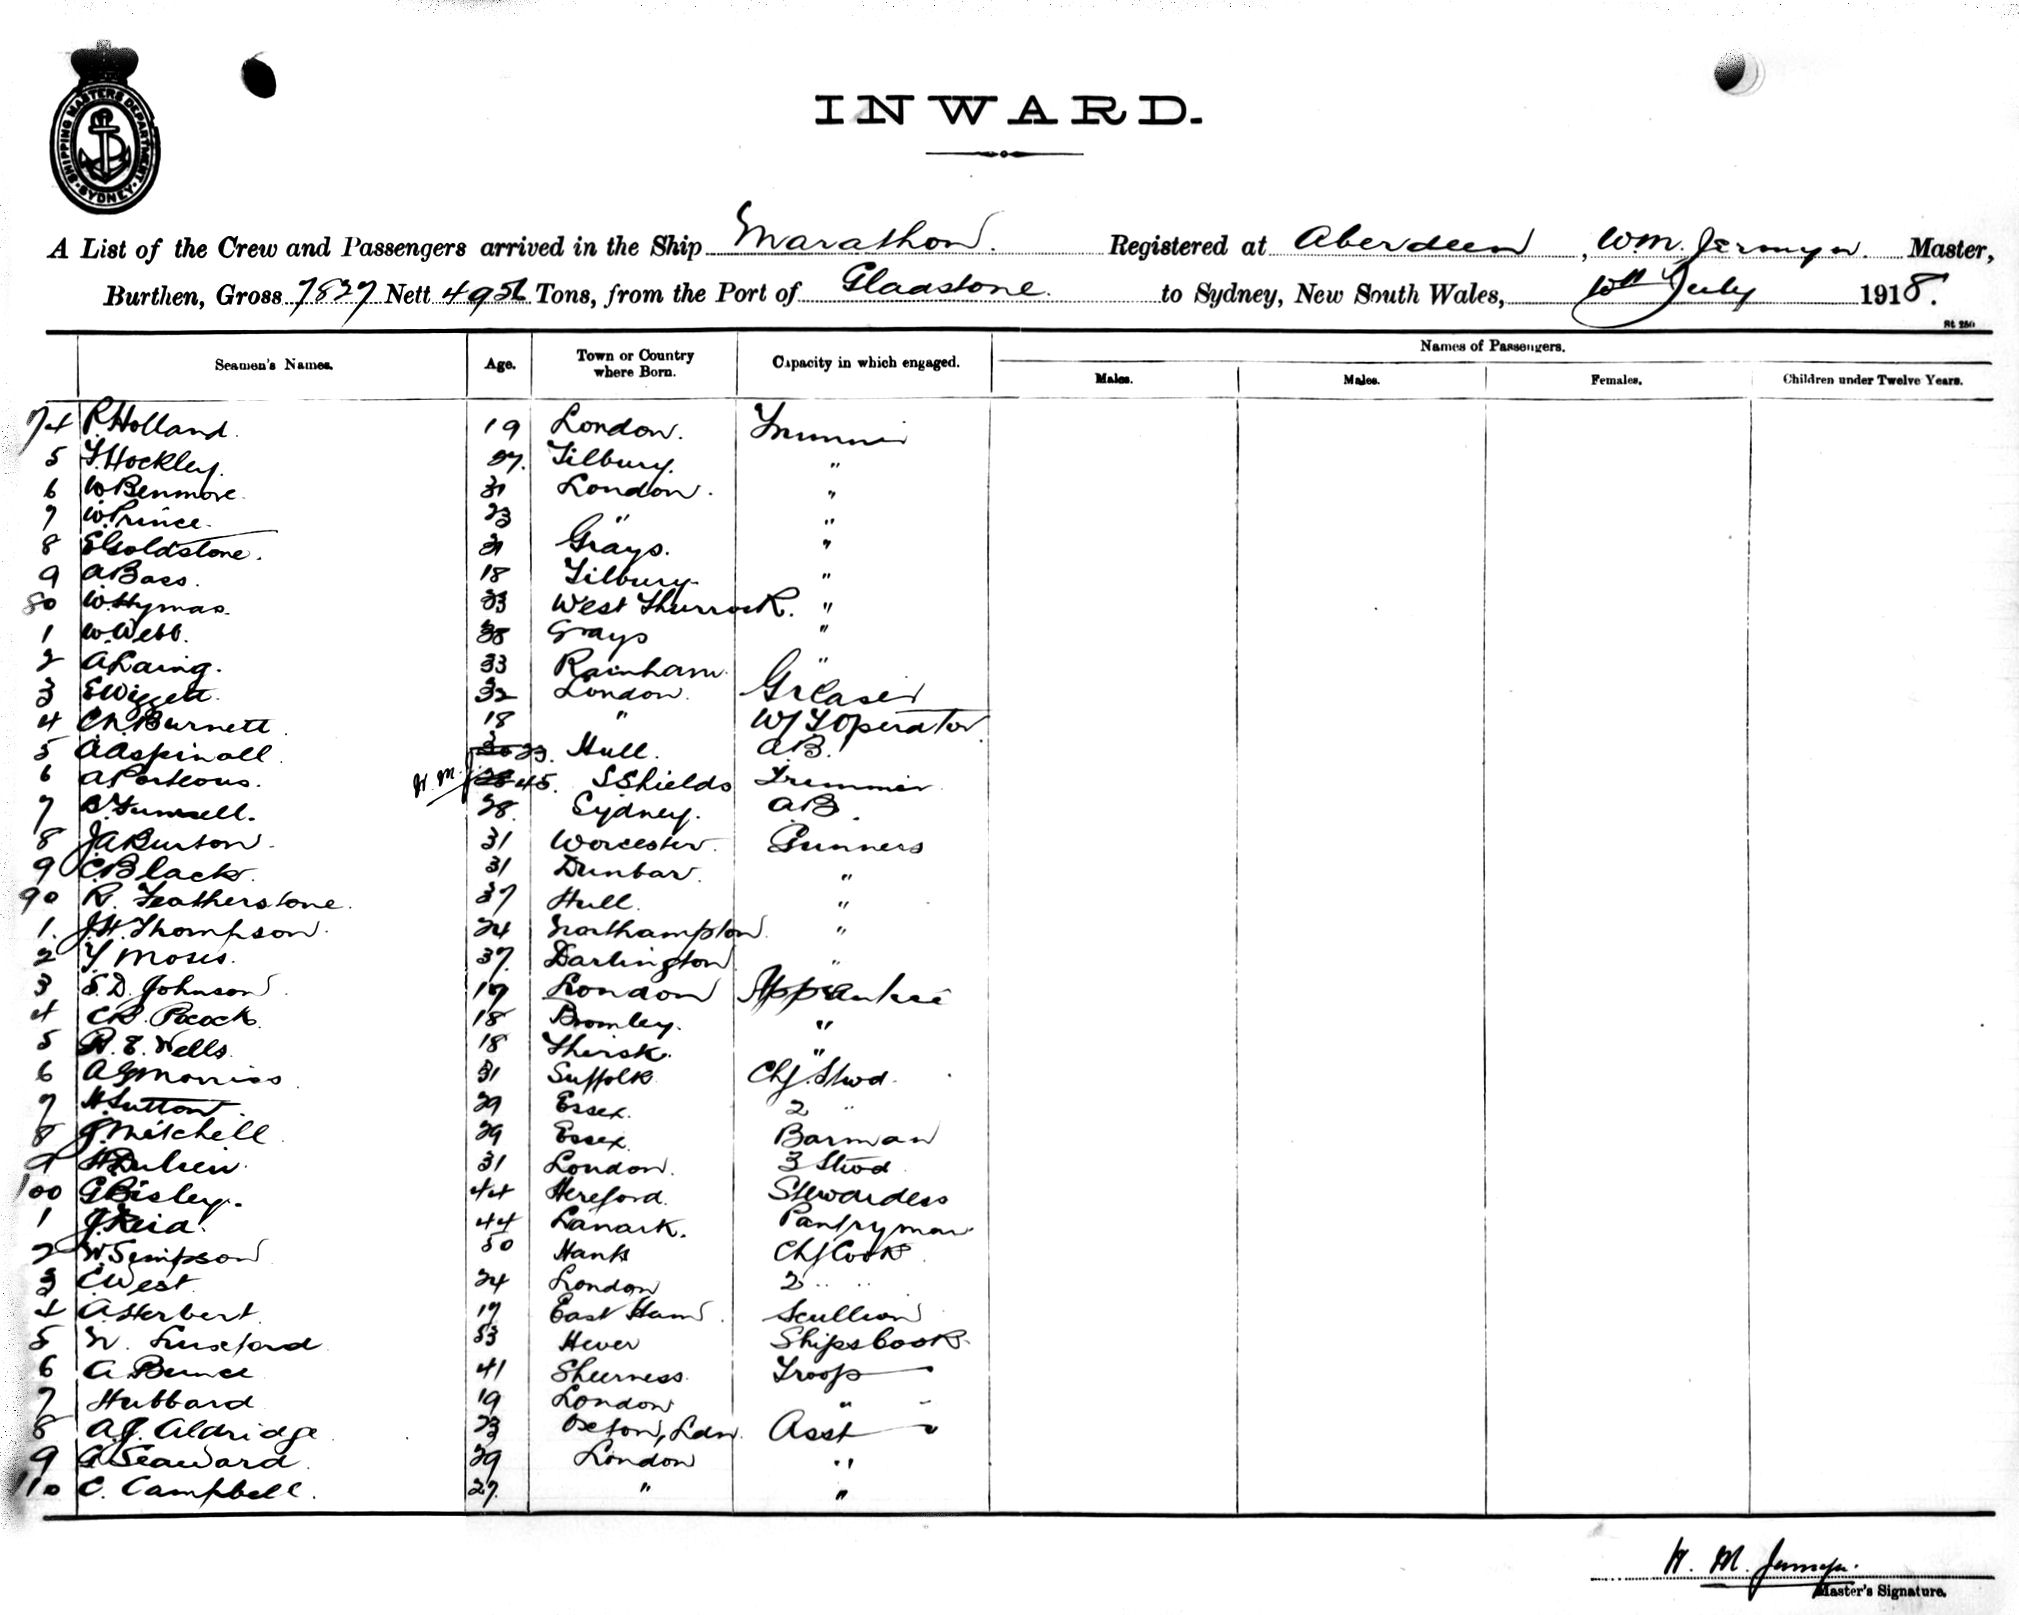 SHIPPING MASTERS DEPARTMENT. SYDNEY
INWARD.
A List of the Crew and Passengers arrived in the Ship Marathon. Registered at Aberdeen, W.M. Jermyn. Master,
Burthen, Gross 7827 Nett Tons, from the Port of Gladstone. to Sydney, New South Wales, 10th July 1918.
St. 250
Names of Passengers.
Seamen's Names. Age. Town or Country where Born. Capacity in which engaged. Males. Males. Females. Children under Twelve Years.
74 R. Holland. 19 London. Trimmer
5 T. Hockley. 27. Tilbury. "
6 W Benmore. 31 London. "
7 W. Prince. 23 " "
8 E Goldstone. 31 Grays. "
9 A Bass. 18 Tilbury. "
80 W. Hymas. 33 West Thurrock. "
1 W. Webb. 38 Grays "
2 A Laing. 33 Rainham. "
3 E Wiggett. 32 London. Greaser
4 Burnett. 18 " W/T Operator.
5 A Aspinall 23. Hull. A.B.
6 A Porteous. 45. S Shields Trimmer
7 28. Sydney. A.B.
8 J A Burton. 31 Worcester. Gunners
9 C. Black. 31 Dunbar. "
90 R. Featherstone. 37 Hull. "
1. J.H. Thompson. 24 Northampton. "
2 Moses. 37. Darlington "
3 S.D. Johnson. 17 London Apprentice
4 Pocock. 18 Bromley. "
5 R. E. Wells 18 Thirsk. "
6 A G Morriss. 31 Suffolk Chf. Stwd.
7 H Sutton. 29 Essex. 2 "
8 J. Mitchell 29 Essex. Barman
9 31 London. 3 Stwd
100 G Bisley. 44 Hereford. Stewardess
1 J. Reid. 44 Lanark. Pantryman
2 W. Simpson 50 Hants Chf Cook
3 C West. 24 London 2 " "
4 A. Herbert. 17 East Ham. Scullion
5 W. Luxford 53 Hever Ships Cook.
6 A Bunce 41 Sheerness. Troop "
7 Hubbard 19 London " "
8 A.J. Aldridge 23 Oxton, Ldn. Asst "
9 Seaward. 29 London "
110 C. Campbell. 27. " "
W. M. Jermyn.
Master's Signature.